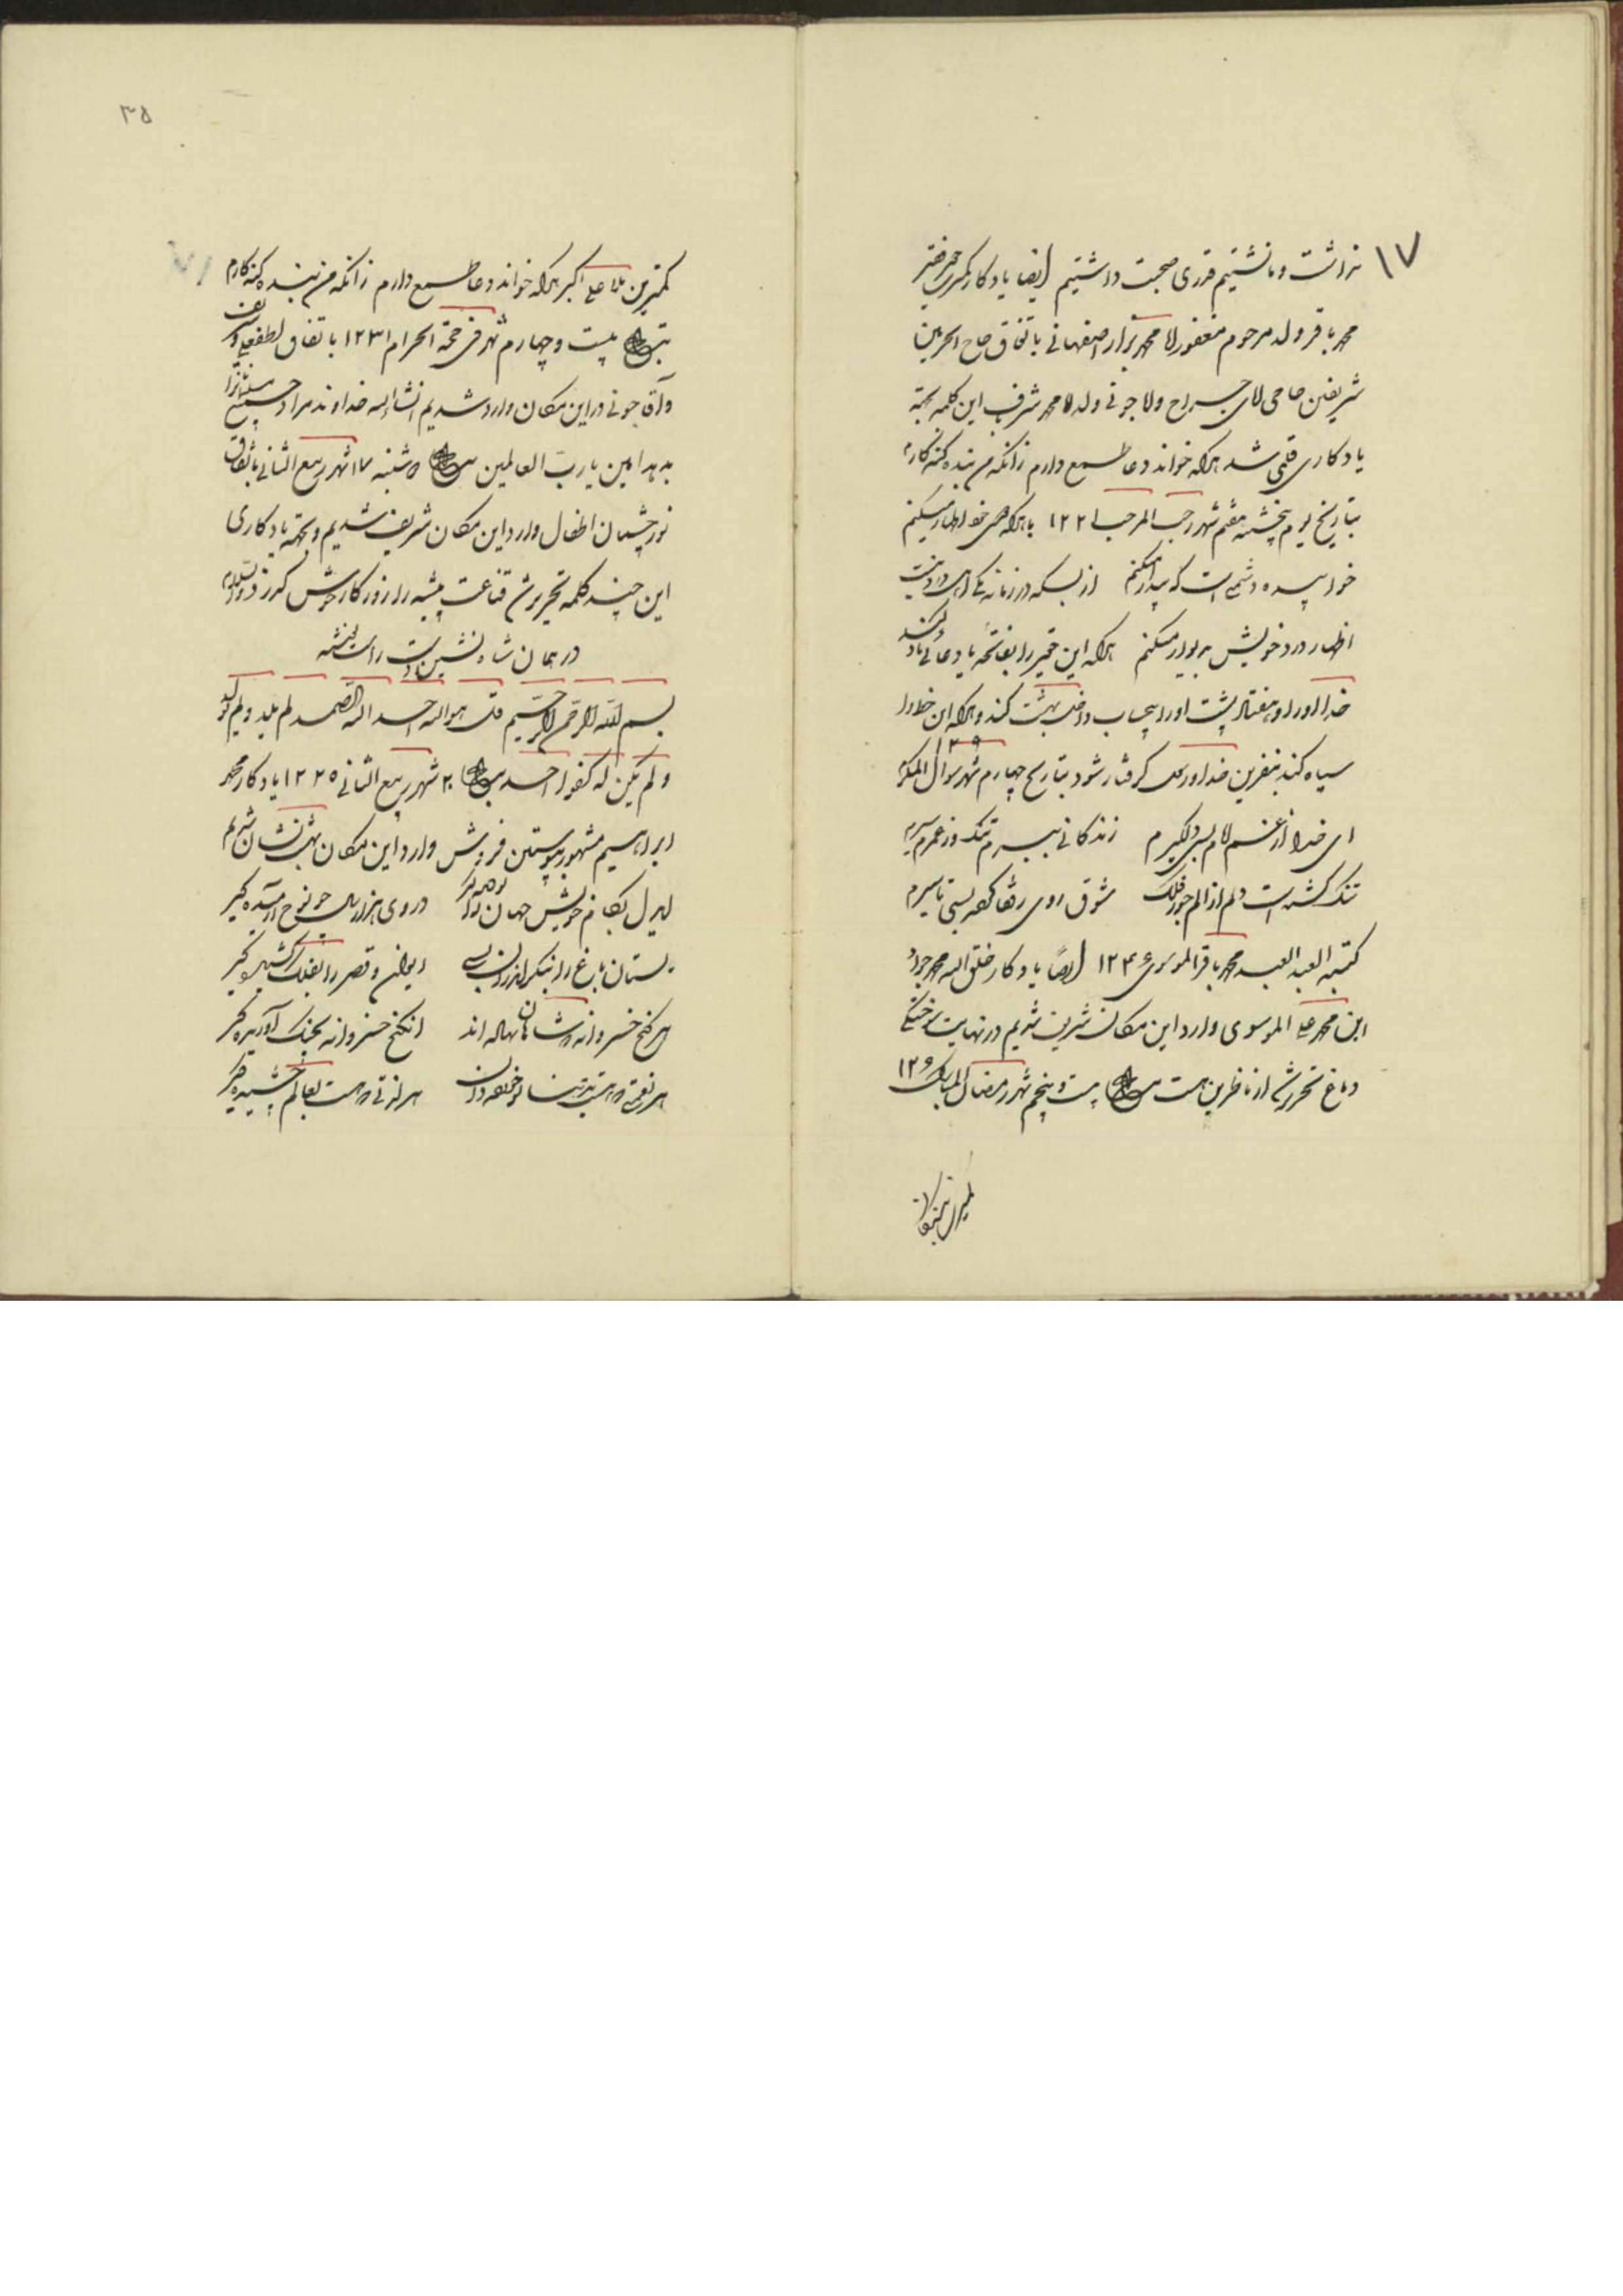 ۱۷
نداشت و ما نشستیم قدری صحبت داشتیم ایضا یادکار کمترین حقیر
محمد باقر ولد مرحوم مغفور لا محمد بزاز اصفهانی باتفاق حاج الحرمین
شریفین حاجی لای جراح ولا جونی ولد لا محمد شرف این کلمه بجهة
یادکاری قلمی شد هرکه خواند دعا طمع دارم زانکه من بنده کنه کارم
بتاریخ یوم پنجشنبه هفتم شهر رجب المرجب ۱۲۲۱ با هرکه همی خود اظهار میکنم
خوابیده دشمنی است که بیدار میکنم از بسکه در زمانه یکی اهل درد نیست
اظهار درد خویش بدیوار میکنم هرکه این حقیر را بفاتحه یا دعائی یاد کند
خداوند او را و هفتاد پشت او را بیحساب داخل بهشت کند و هرکه این خط را
سیاه کند بنفرین خدا و رسول گرفتار شود بتاریخ چهارم شهر شوال المکرم
ای خدا از غم لام بس دلگیرم زندگانی ببرم تنگ وز عمرم سیرم
تنگ گشته است دلم از الم جور فلک شوق روی رفقا
کتبه العبد العبد محمد باقر الموسوی ۱۲۴۶ ایضاً یادکار خلق الله محمد جواد
ابن محمد علی الموسوی وارد این مکان شریف شدیم در نهایت سوختگی
دماغ تحریر شد از ناظرین هست بیست و پنجم شهر رمضان المبارک ۱۲۶
۳۵
کمترین ملا علی اکبر هرکه خواند دعا طمع دارم زانکه من بنده کنه کارم
بیست و چهارم شهر ذی حجة الحرام ۱۲۳۱ باتفاق لطفعلی
و آقا جونی در این مکان وارد شدیم انشاالله خداوند مراد جمیع
بدهد امین یا رب العالمین شنبه ۱۷ شهر ربیع الثانی باتفاق
نور چشمان اطفال وارد این مکان شریف شدیم و بجهة یادکاری
این چند کلمه تحریر شد قناعت پیشه را روزکار خوش گذرد
در همان شاه نشین دست راست نوشته
بسم الله الرحمن الرحیم قل هو الله احد الله الصمد لم یلد ولم یولد
و لم یکن له کفوا احد ۲۰ شهر ربیع الثانی ۱۲۲۵ یادکار محمد
ابراهیم مشهور بپوستین فروش وارد این مکان بهشت نشان شدیم
ایدل بکام خویش جهان را تو دیده گیر در وی هزار سال چو نوح آرمیده گیر
بستان باغ را ایوان و قصر را بفلک برکشیده گیر
هر گنج خسروانه که شاهان نهاده اند ان گنج خسروانه بچنگ آوریده گیر
هر نعمتی که هست هر لذتی که هست بعالم چشیده گیر